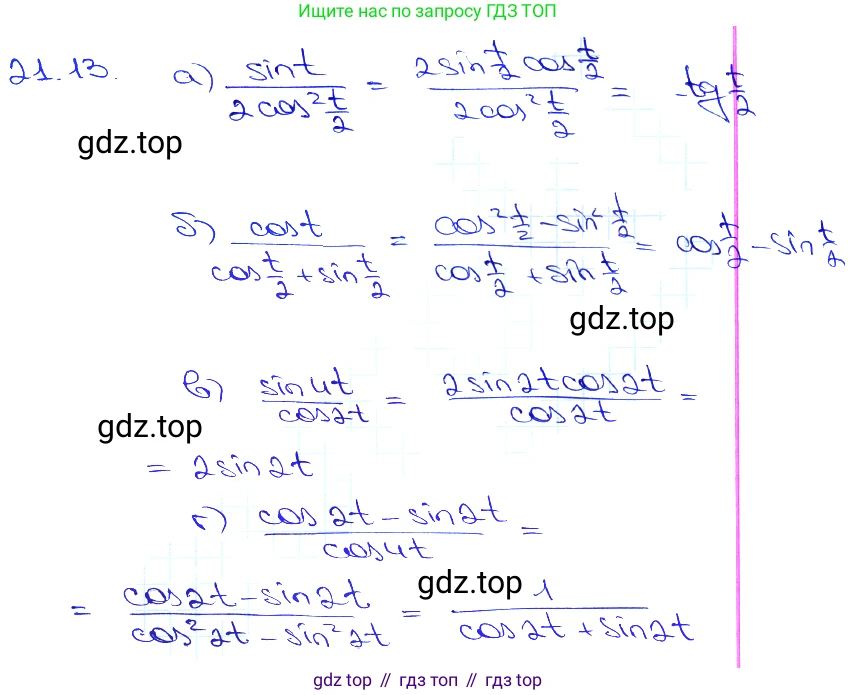 Ищите нас по запросу ГДЗ ТОП
21.13. а) sint / 2cos² t/2 = 2sin t/2 cos t/2 / 2cos² t/2 = tg t/2
gdz.top
б) cost / cos t/2 + sin t/2 = cos² t/2 - sin² t/2 / cos t/2 + sin t/2 = cos t/2 - sin t/2
gdz.top
в) sin4t / cos2t = 2sin2tcos2t / cos2t =
gdz.top
= 2sin2t
г) cos2t - sin2t / cos4t =
gdz.top
= cos2t - sin2t / cos²2t - sin²2t = 1 / cos2t + sin2t
gdz top // гдз топ // гдз top